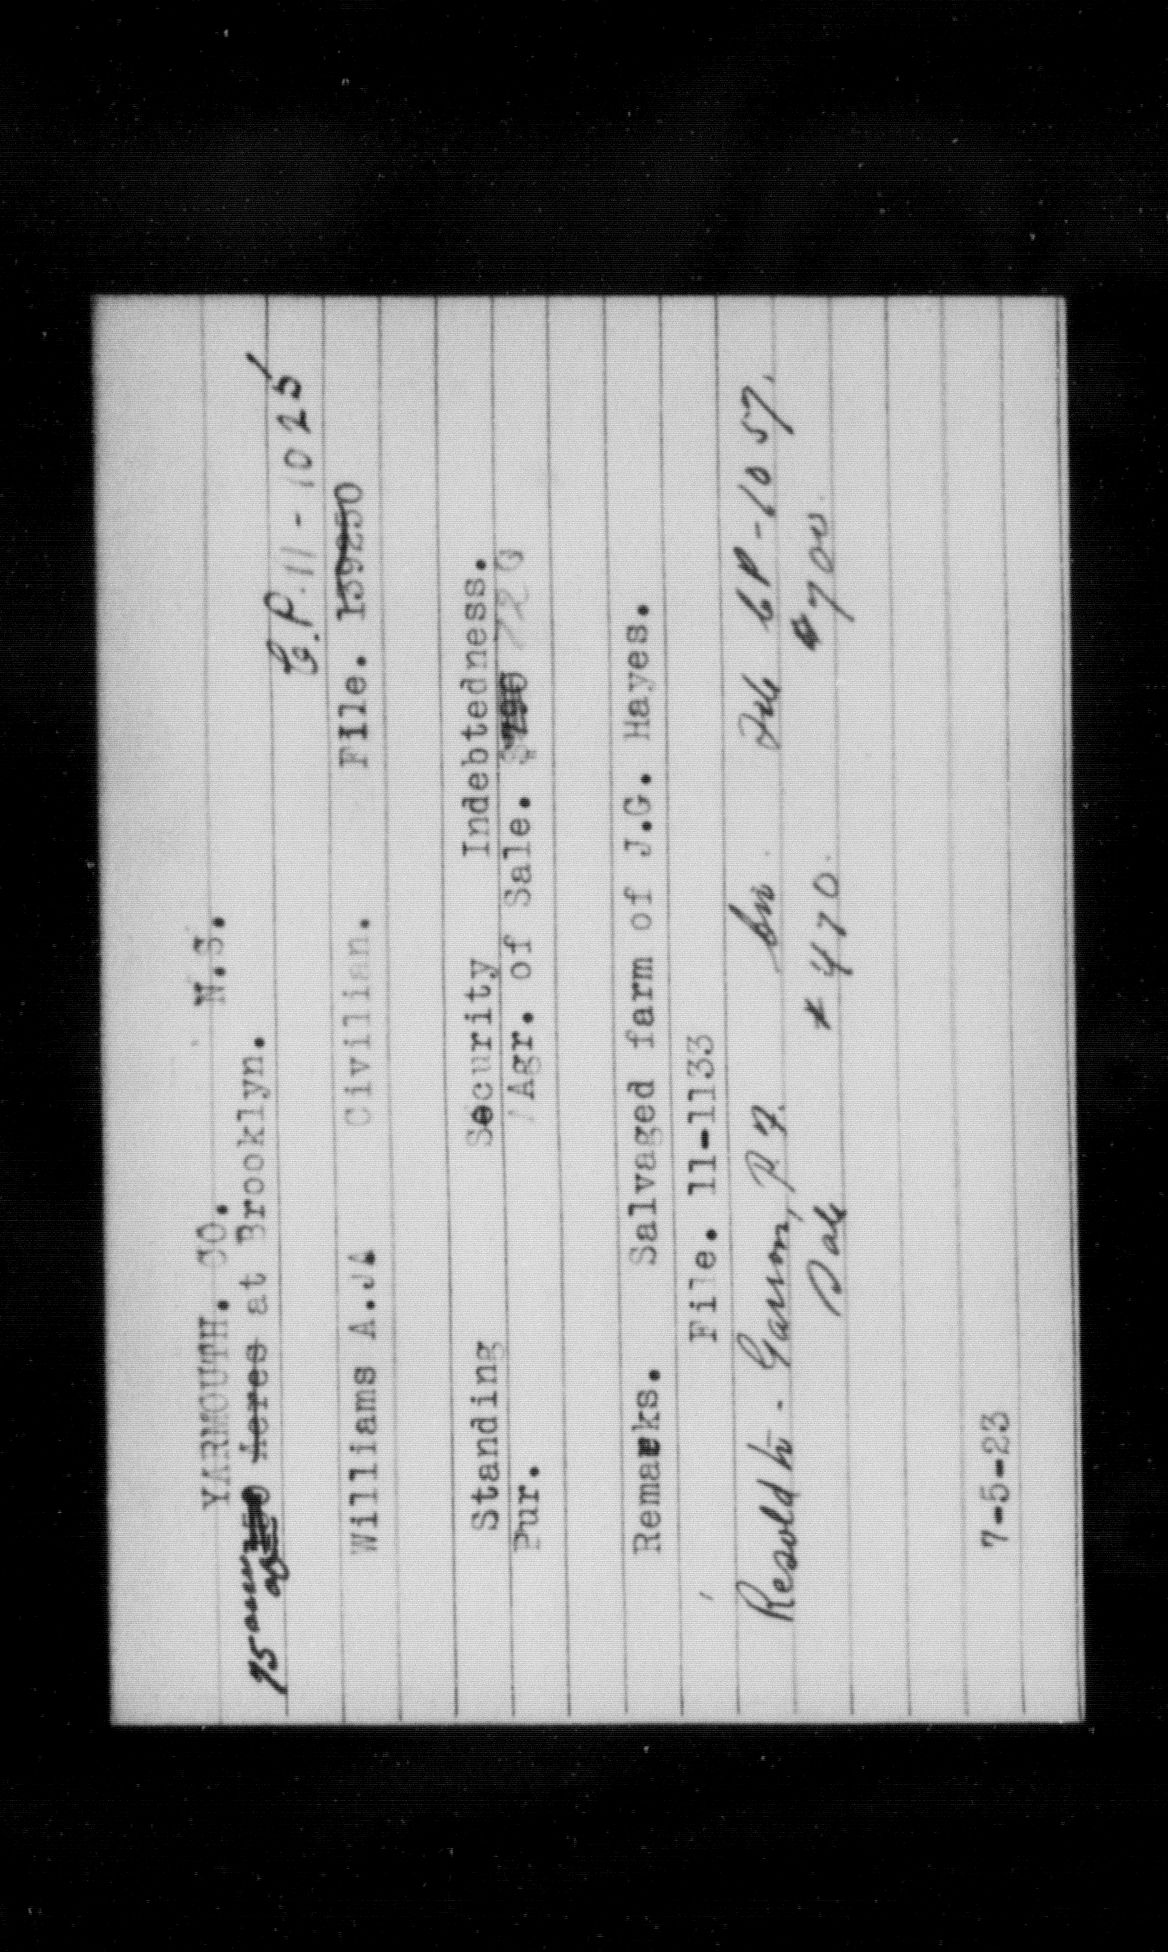 YARMOUTH. CO. N.S.
75 acres Acres at Brooklyn.
C.P. 11-1025
Williams A.J. Civilian. File. 139250
Standing Security Indebtedness.
Pur. Agr. of Sale. $790 720
Remarks. Salvaged farm of J.G. Hayes.
File. 11-1133
Resold to - P.F. CP-1057.
Sale $470. $700.
7-5-23